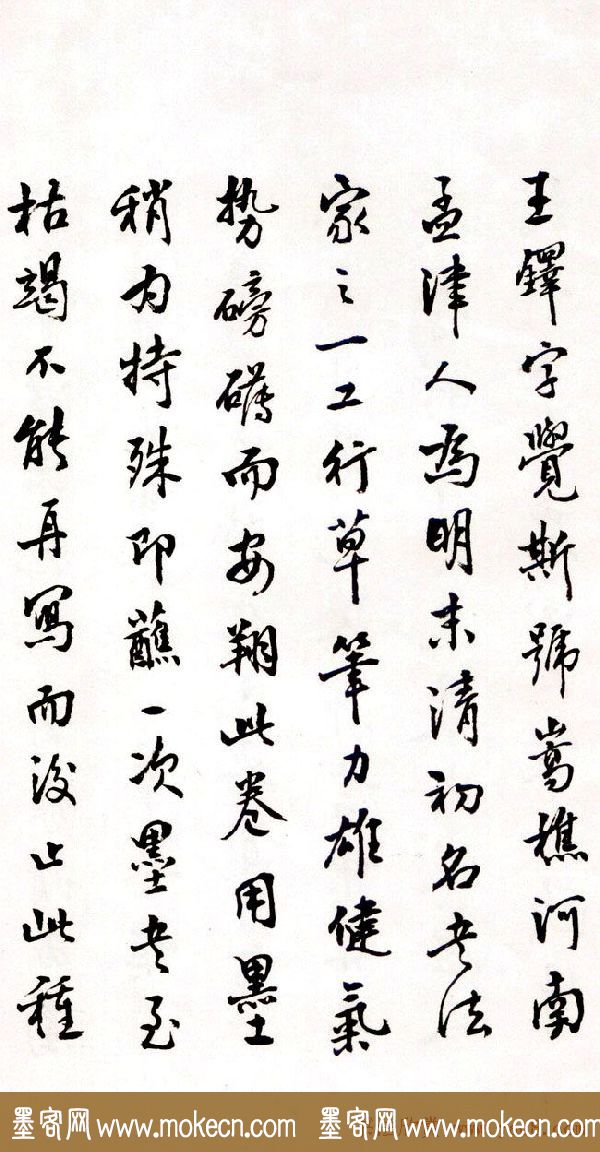 王鐸字覺斯號嵩樵河南
孟津人為明末清初名书法
家之一工行草筆力雄健氣
势磅礴而安翔此卷用墨
稍为特殊即蘸一次墨书至
枯竭不能再寫而後止此種
墨客网 www.mokecn.com 墨客网 www.mokecn.com